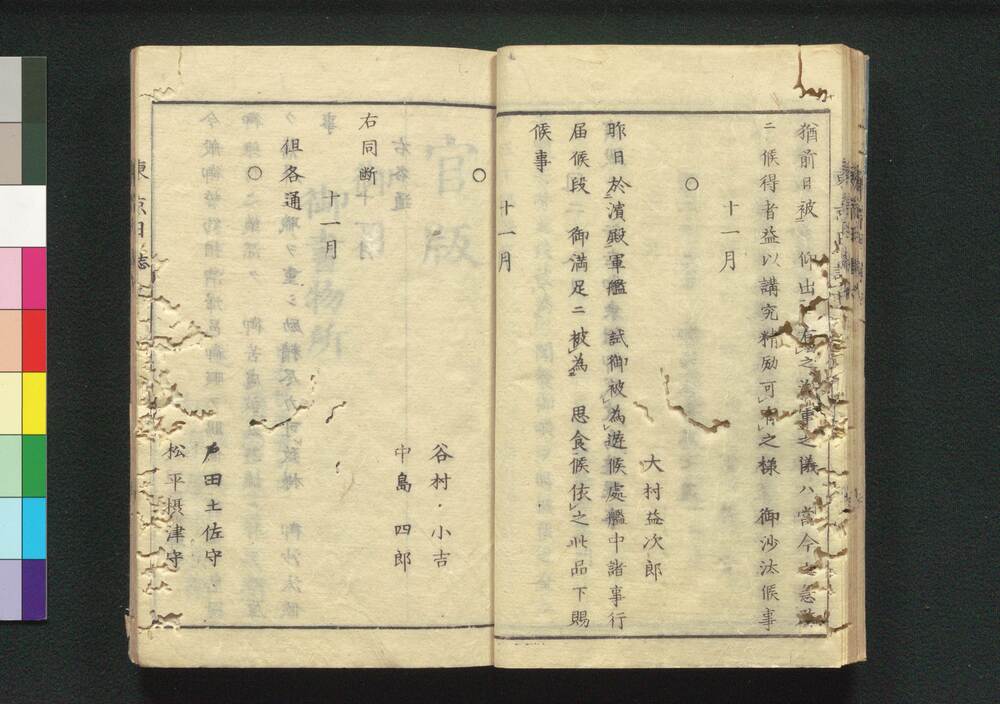 猶前日被 仰出候
之海軍之儀ハ當今之急務
ニ候得者益以講究精励可有之様 御沙汰候事
十一月
○
大村益次郎
昨日於濱殿軍艦 試御被為遊候處艦中諸事行
届候段 御満足ニ被為 思食候依之此品下賜
候事
十一月
○
谷村 小吉
中島 四郎
右同断
十一月
但各通
○
戸田土佐守
松平摂津守
東京日誌